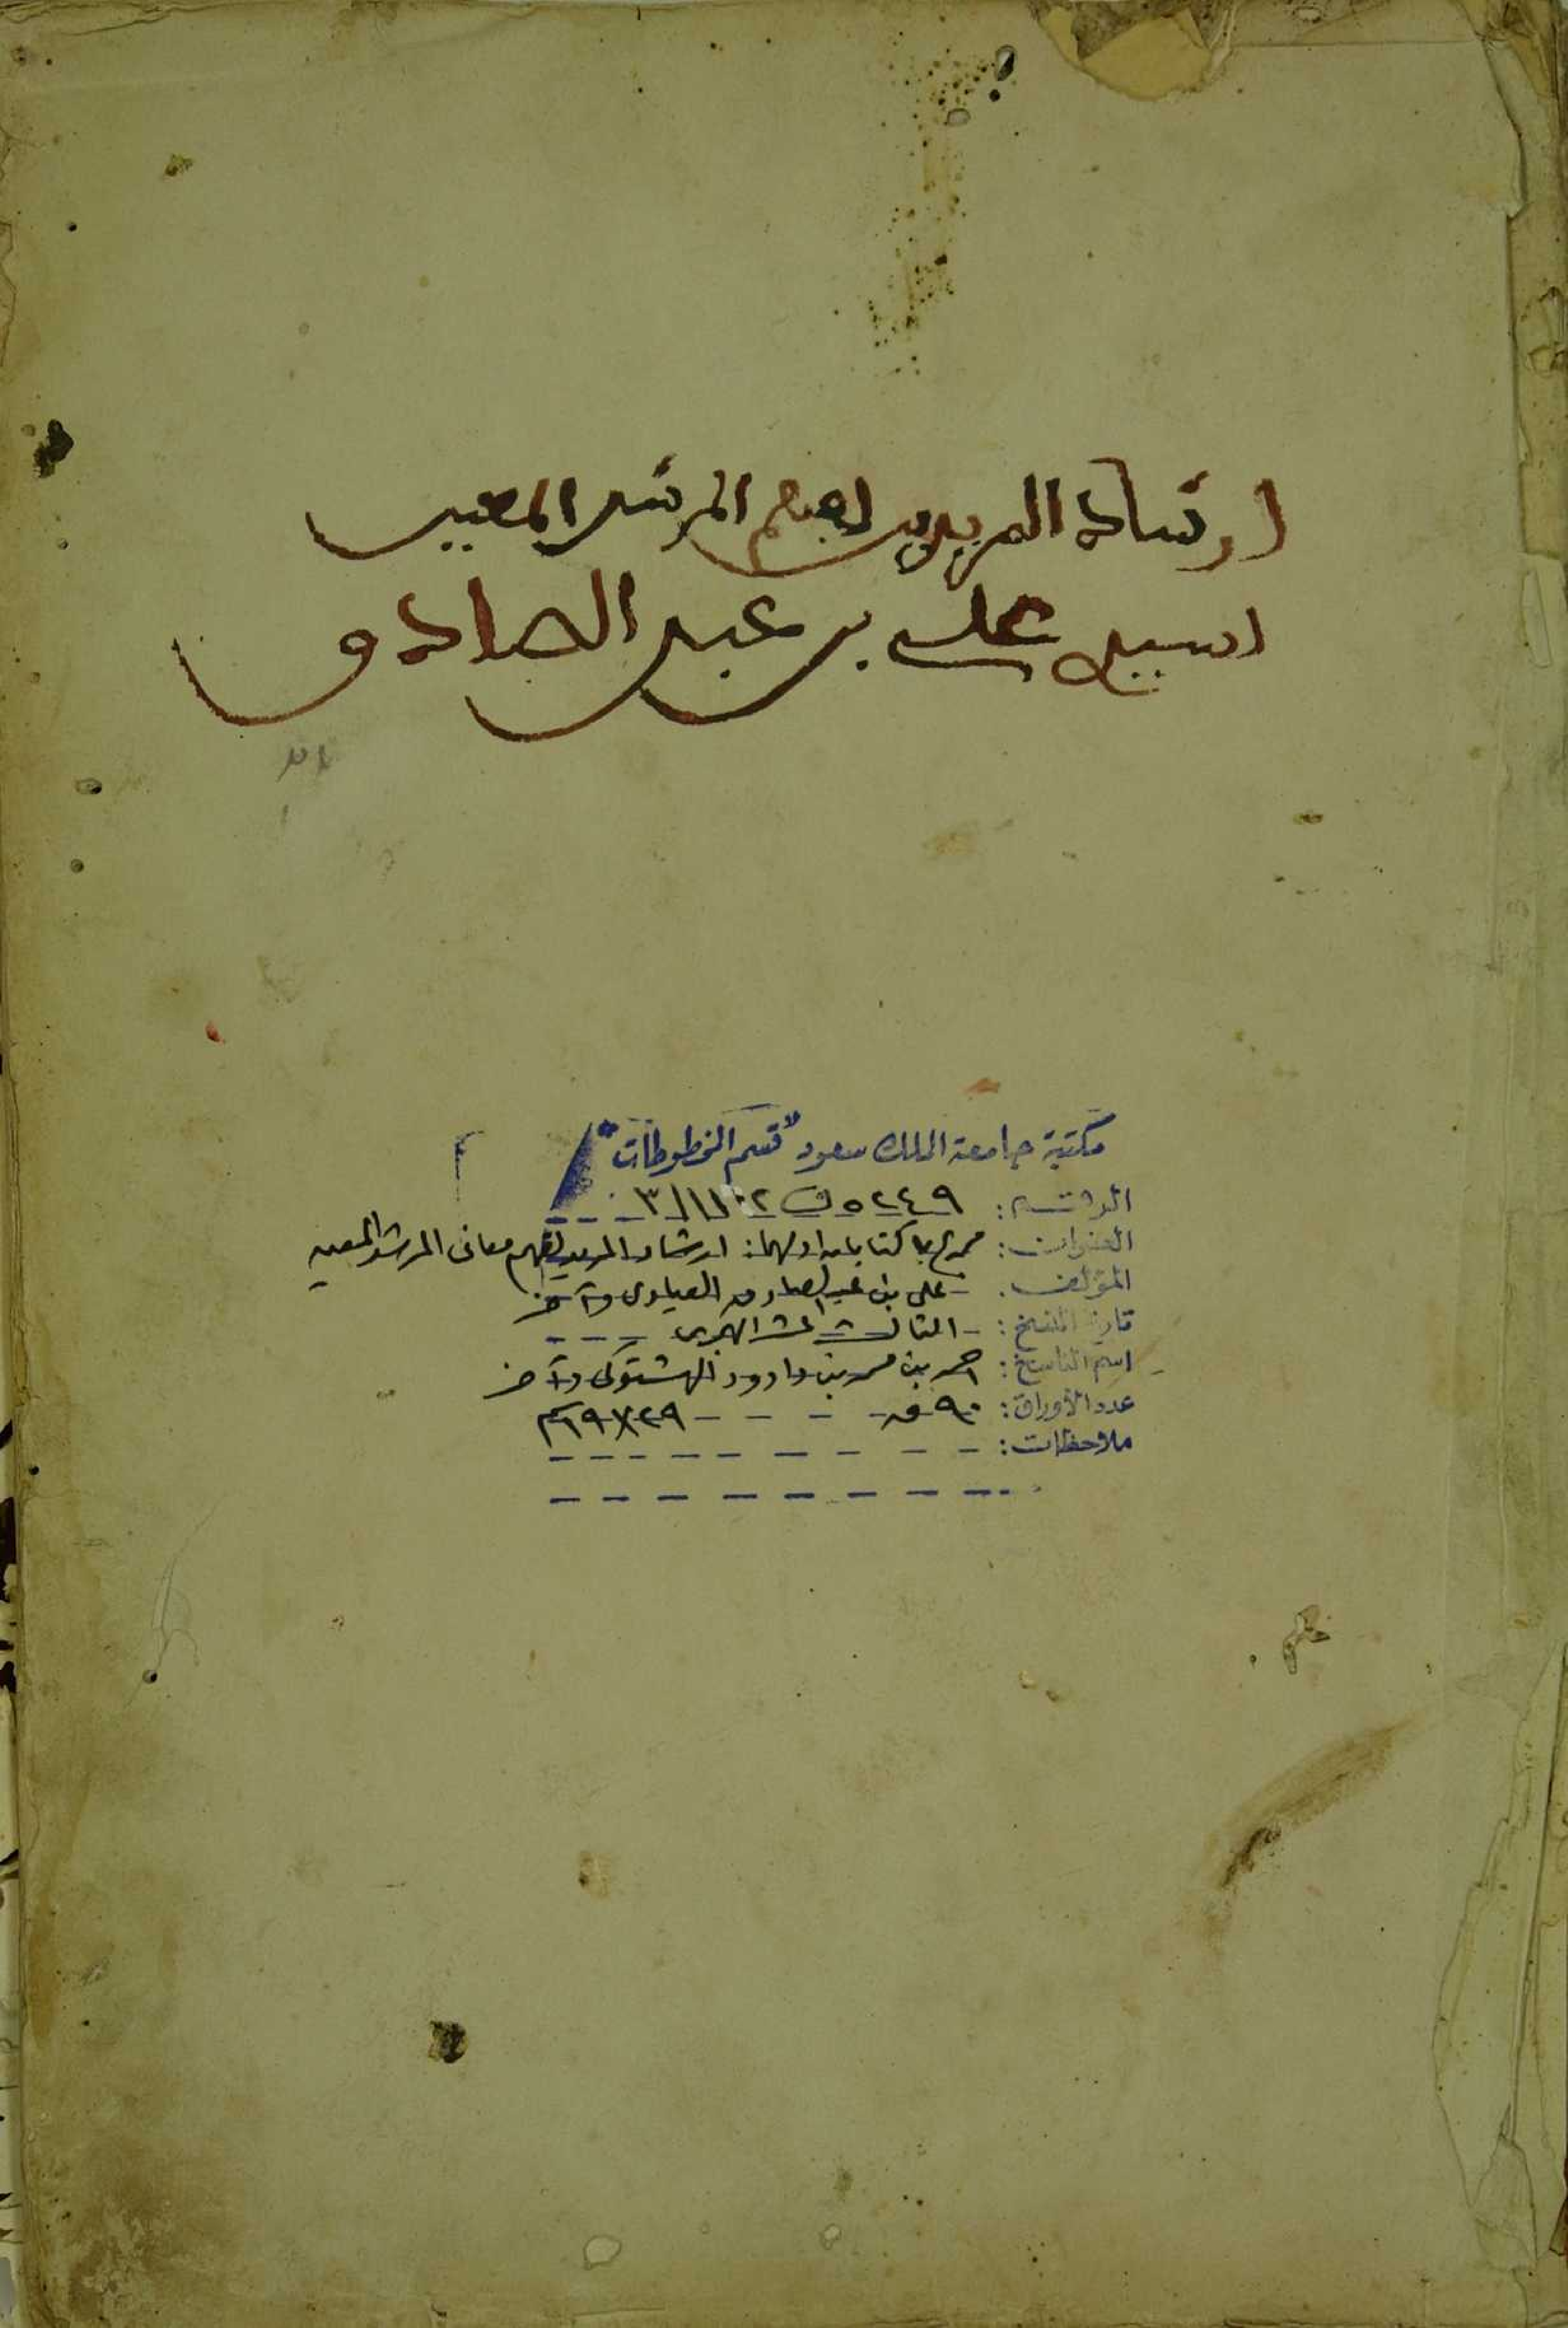 ارشاد المريدين لفهم المرشد المعين
لسيدي علي بن عبد الصادق
مكتبة جامعة الملك سعود "قسم المخطوطات"
الرقم: ٥٢٤٩ ف ١١٠٢/٣
العنوان: مجموع بها كتابان اولهما: ارشاد المريدين لفهم معانى المرشد المعين
المؤلف: على بن عبدالصادق العيادى وآخر
تاريخ النسخ: الثالث عشر الهجرى
اسم الناسخ: احمد بن محمد بن داوود الهشتوكى وآخر
عدد الأوراق: ٩٠ ق - - - ٢٩×١٩ سم
ملاحظات: